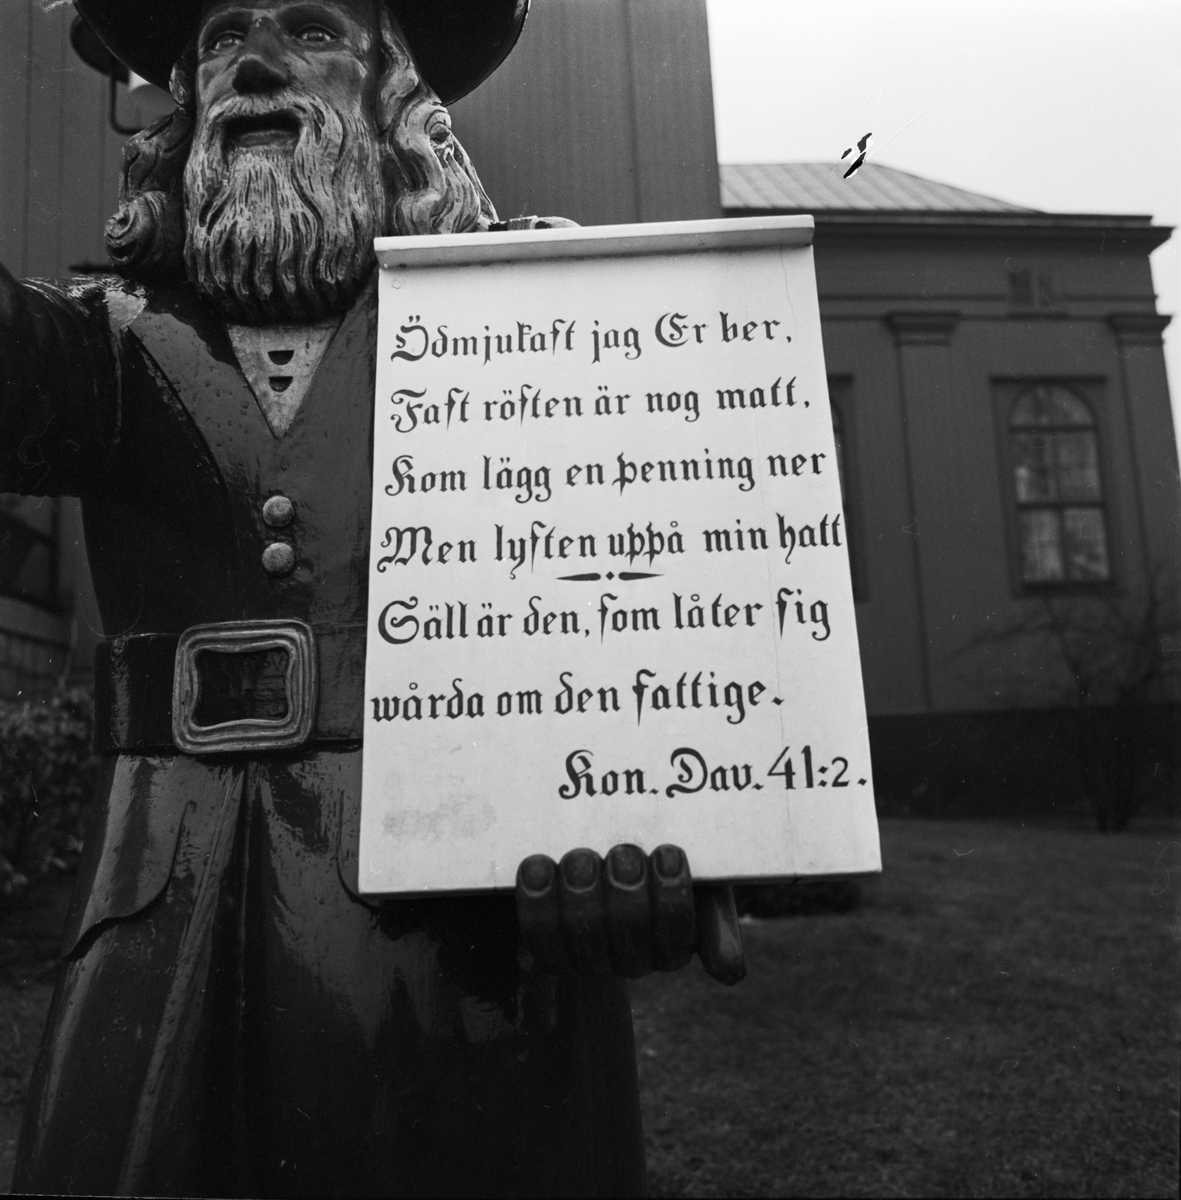 Ödmjukast jag Er ber,
Fast rösten är nog matt,
Kom lägg en penning ner
Men lyften uppå min hatt
Säll är den, som låter sig
wårda om den fattige.
Kon. Dav. 41:2.